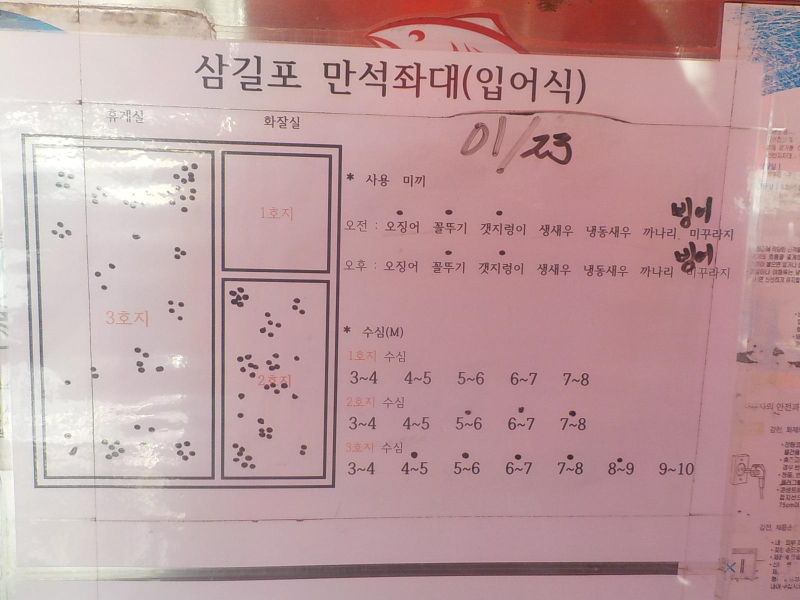 삼길포 만석좌대(입어식)
휴게실 화잘실
01/23
* 사용 미끼
빙어
오전 : 오징어 꼴뚜기 갯지렁이 생새우 냉동새우 까나리 미꾸라지
빙어
오후 : 오징어 꼴뚜기 갯지렁이 생새우 냉동새우 까나리 미꾸라지
1호지
3호지
2호지
* 수심(M)
1호지 수심
3~4 4~5 5~6 6~7 7~8
2호지 수심
3~4 4~5 5~6 6~7 7~8
3호지 수심
3~4 4~5 5~6 6~7 7~8 8~9 9~10